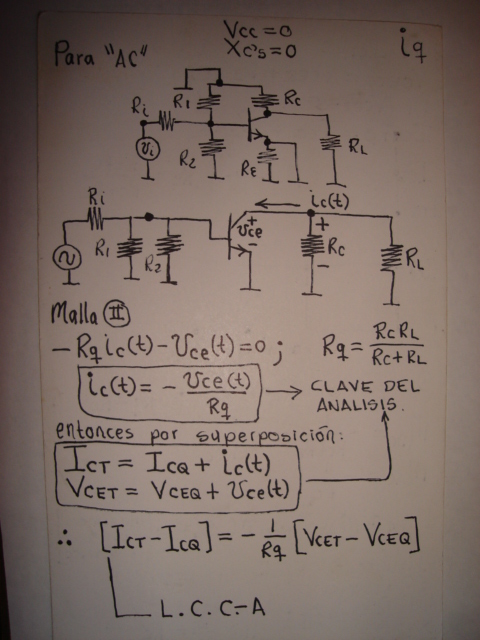 Vcc = 0
Para "AC" Xc's = 0 iq
R1 Rc
Ri
Vi R2 RE RL
Ri ic(t)
R1 R2 + Vce - + Rc - RL
Malla II
- Rq ic(t) - Vce(t) = 0 ; Rq = RcRL / Rc + RL
ic(t) = - Vce(t) / Rq → CLAVE DEL
ANALISIS.
entonces por superposición:
ICT = ICQ + ic(t)
VCET = VCEQ + Vce(t)
∴ [ICT - ICQ] = - 1/Rq [VCET - VCEQ]
L.C.C-A